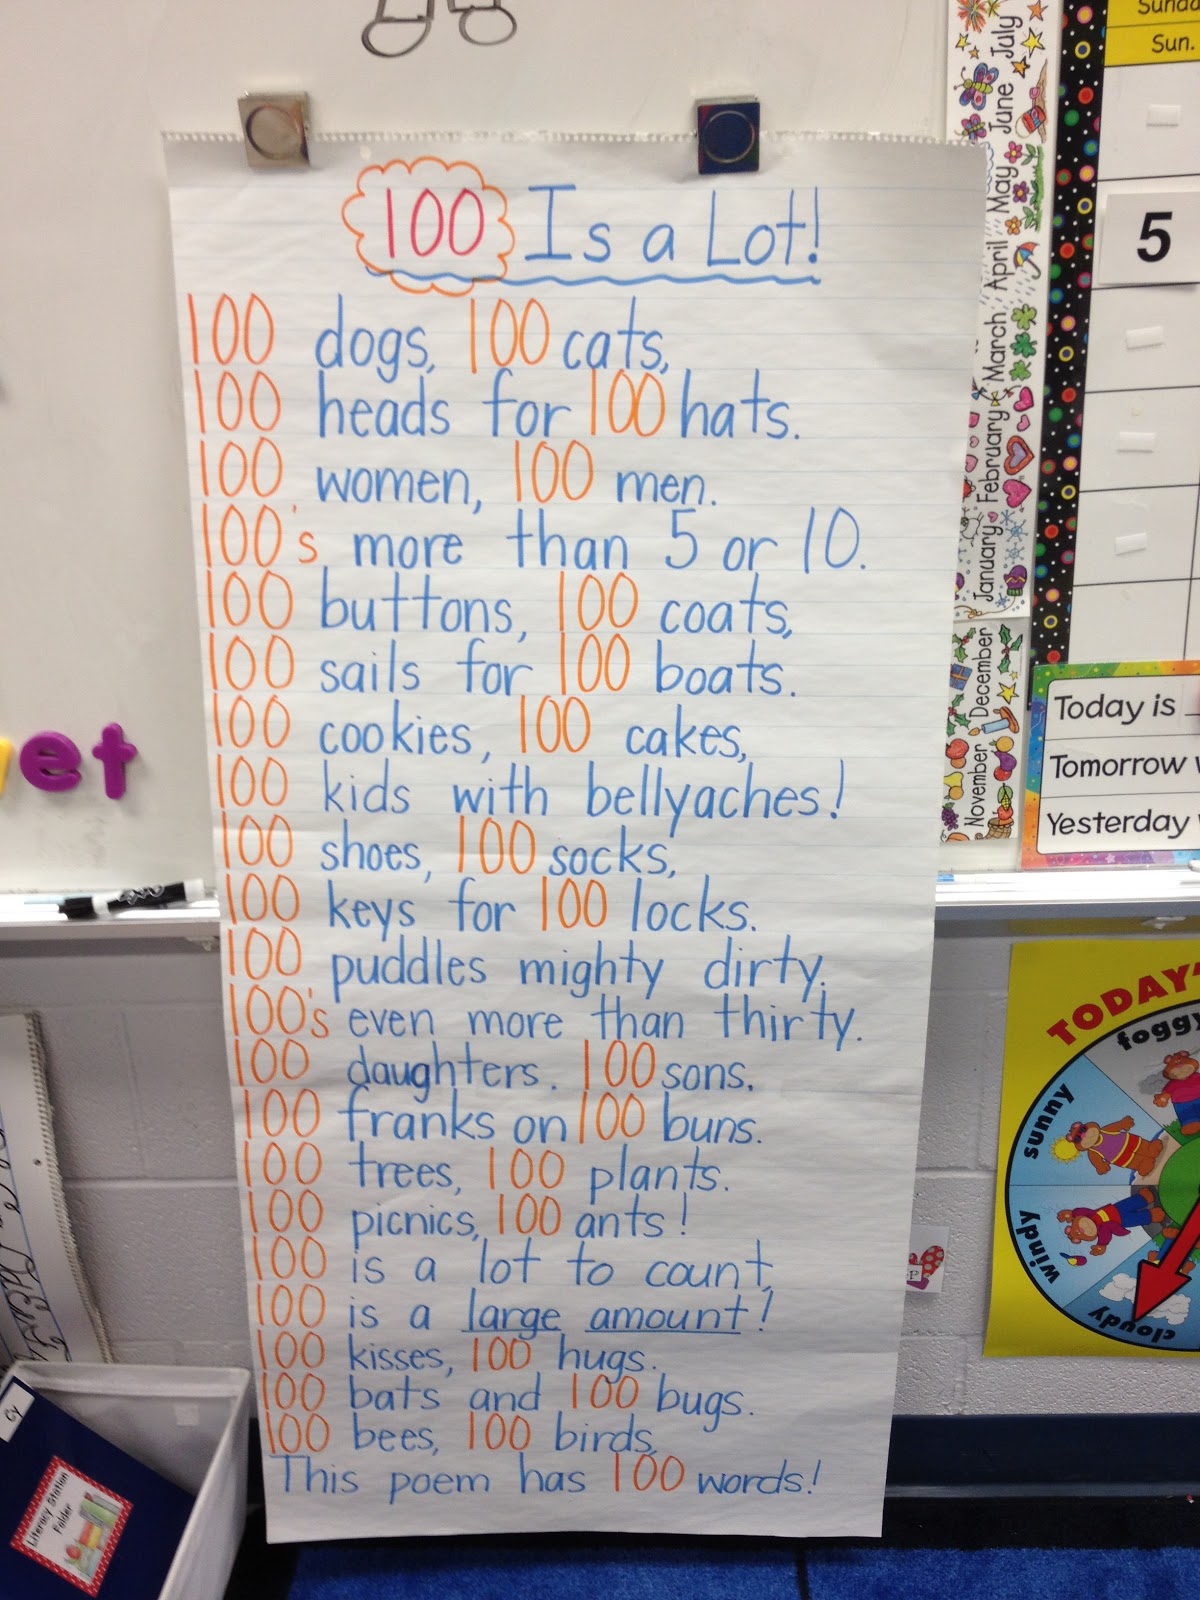 100 Is a Lot!
100 dogs, 100 cats,
100 heads for 100 hats.
100 women, 100 men.
100's more than 5 or 10.
100 buttons, 100 coats,
100 sails for 100 boats.
100 cookies, 100 cakes,
100 kids with bellyaches!
100 shoes, 100 socks,
100 keys for 100 locks.
100 puddles mighty dirty.
100's even more than thirty.
100 daughters. 100 sons.
100 franks on 100 buns.
100 trees, 100 plants.
100 picnics, 100 ants!
100 is a lot to count,
100 is a large amount!
100 kisses, 100 hugs.
100 bats and 100 bugs.
100 bees, 100 birds,
This poem has 100 words!
et
Sun.
5
July
June
May
April
March
February
January
December
November
Today is
Tomorrow
Yesterday
TODAY'
foggy
sunny
windy
cloudy
Cy
Literacy Station
Folder